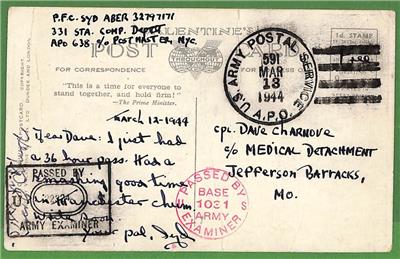 P.F.C. SYD ABER 32797171
331 STA. COMP. Depot
APO 638 % POSTMASTER, NYC.
VALENTINE'S
POST CARD
FOR CORRESPONDENCE
"This is a time for everyone to
stand together, and hold firm!"
—The Prime Minister.
1d. STAMP
U.S. ARMY POSTAL SERVICE
591
MAR
13
1944
A.P.O.
March 12-1944
Dear Dave: I just had
a 36 hour pass. Had a
smashing good time
in Manchester chum.
Write soon
Your pal, Syd
PASSED BY
U S
ARMY EXAMINER
PASSED BY
BASE
1031
ARMY
EXAMINER
Cpl. DAVE CHARNOVE
% MEDICAL DETACHMENT
JEFFERSON BARRACKS,
MO.